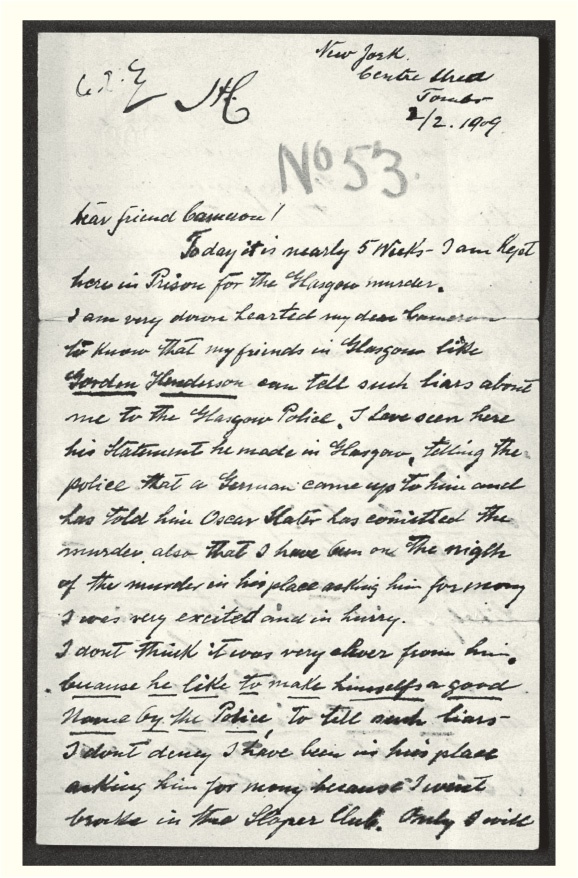 New York.
Centre Street
Tombs
2/2. 1909.
No 53.
Dear friend Cameron!
Today it is nearly 5 Weeks - I am Kept
here in Prison for the Glasgow murder.
I am very down hearted my dear Cameron
to know that my friends in Glasgow like
Gordon Henderson can tell such liars about
me to the Glasgow Police. I have seen here
his Statement he made in Glasgow, telling the
police that a German came up to him and
has told him Oscar Slater has comitted the
murder also that I have been on the nigth
of the murder in his place asking him for mony
I was very excited and in hurry.
I dont think it was very clever from him,
because he like to make himselfs a good
Name by the Police, to tell such liars -
I dont deney I have been in his place
asking him for mony because I went
brocke in the Sloper Club. Only I will